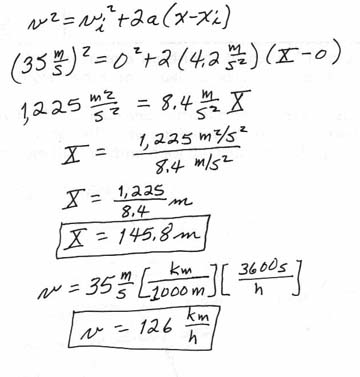 v² = vᵢ² + 2a(x-xᵢ)
(35 m/s)² = 0² + 2(4,2 m/s²)(X-0)
1,225 m²/s² = 8.4 m/s² X
X = 1,225 m²/s² / 8.4 m/s²
X = 1,225/8.4 m
X = 145.8m
v = 35 m/s [km/1000m][3600s/h]
v = 126 km/h